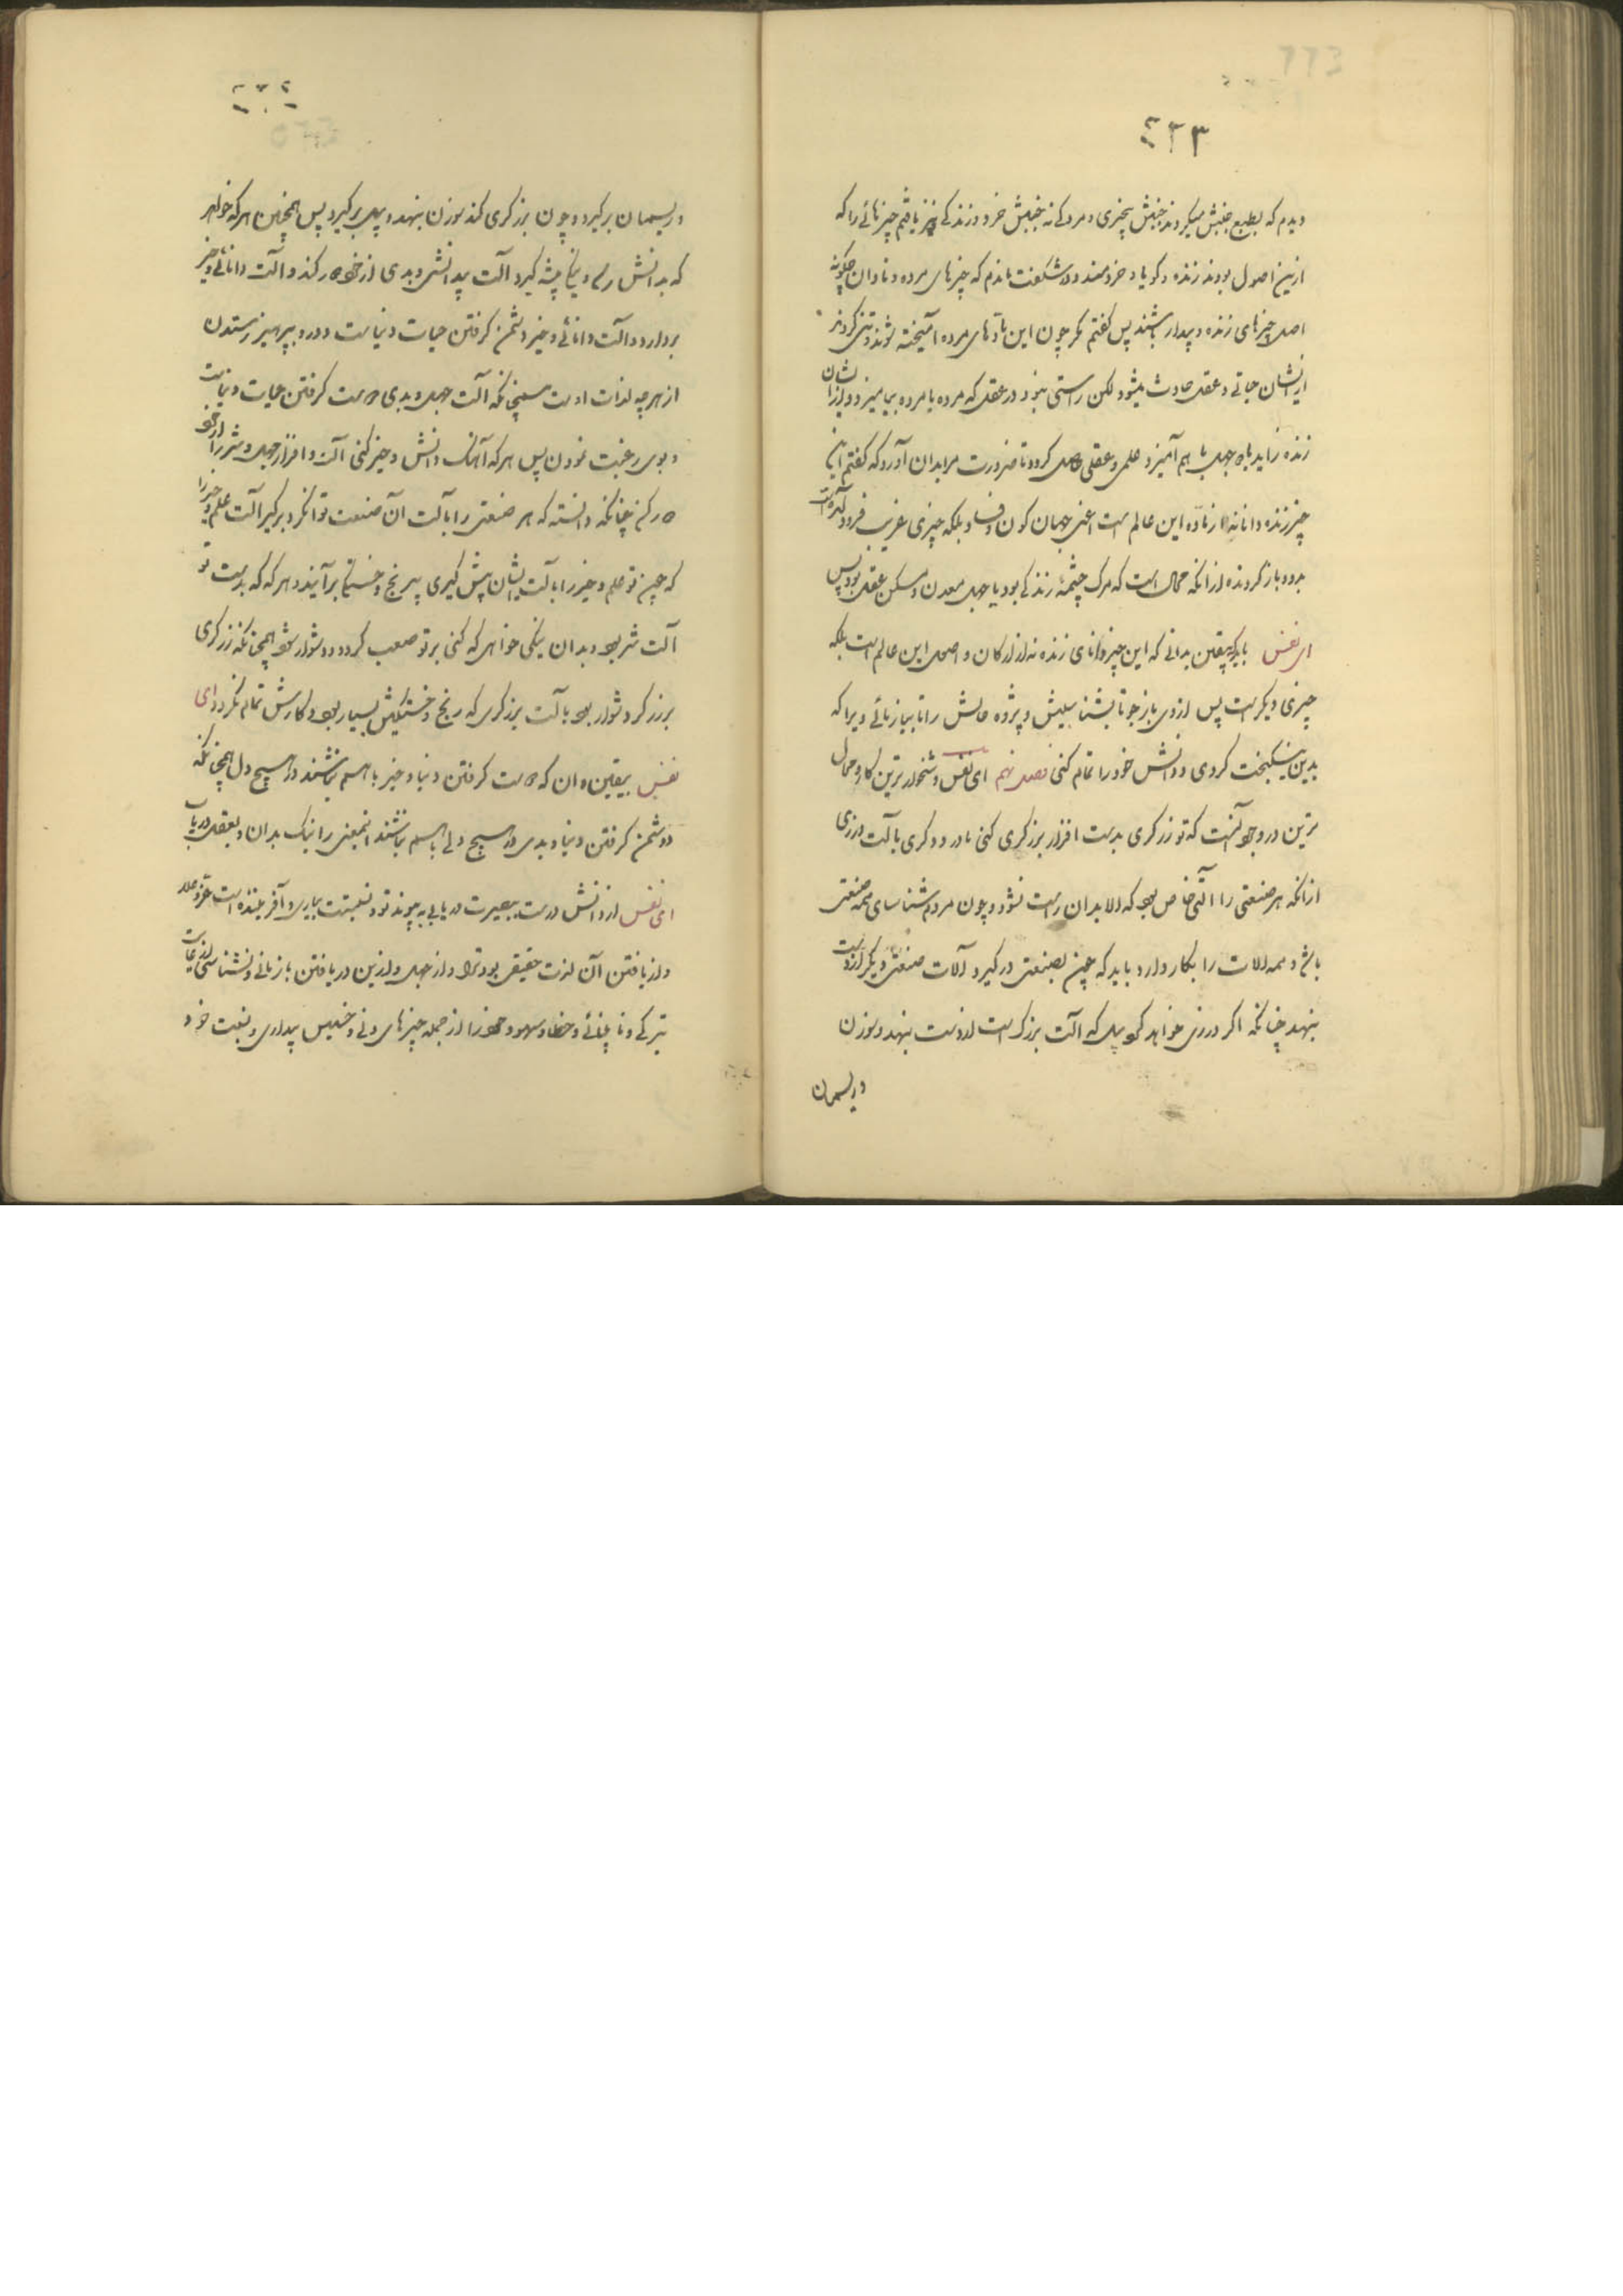 ٤٣٣
دیدم که بطبع جنبش میکردند جنبش بیخبری و مردکی نه جنبش خرد و زندکی و نیز یافتم چیزهائی را که
ازین اصول بودند زنده و کویا و خردمند و در شکفت ماندم که چیزهای مرده و نادان چکونه
اصل چیزهای زنده و بیدار باشند پس کفتم مکر چون این مادهای مرده آمیخته شوند و تنی کردند
ازیشان حیاتی و عقلی حادث میشود لکن راستی نبود در عقل که مرده با مرده بیامیزد و از ایشان
زنده زاید یا جهل با هم آمیزد و علمی و عقلی حاصل کردد تا ضرورت مرا بدان آورد که کفتم این
چیز زنده و دانا نه از ماده این عالم است اعنی جهان کون و فساد بلکه چیزی غریب فرود آمده است
بدو و باز کردنده از آنکه محال است که مرک چشمهٔ زندکی بود یا جهل معدن و مسکن عقل بود پس
ای نفس باید که بیقین بدانی که این چیز دانای زنده نه از ارکان و اصل این عالم است بلکه
چیزی دیکر است پس از وی باز جو تا بشناسیش و پژوه حالش را تا بیاز یائی ویرا که
بدین نیکبخت کردی و دانش خود را تمام کنی فصل نهم ای نفس دشخوارترین کار و محال
ترین در وجود آنست که تو زرکری بدست افزار برزکری کنی یا درودکری با آلت درزی
از آنکه هر صنعتی را آلتی خاص بود که الا بدان راست نشود و چون مردم شناسای همه صنعتی
باشد و همه آلات را بکار دارد باید که چون بصنعتی در کیرد آلات صنعتی دیکر از دست
بنهد چنانکه اکر درزی خواهد کرد بیل که آلت برزکر است از دست بنهد و سوزن
و ریسمان
٤٣٤
و ریسمان برکیرد و چون برزکری کند سوزن بنهد و بیل برکیرد پس همچنین هر که خواهد
که بدانش رسد و نیکی پیشه کیرد آلت بیدانشی و بدی از خود دور کند و آلت دانائی و خیر
بردارد و آلت دانائی و خیر دشمن کرفتن حیات دنیاست و دور و بپرهیز زیستن
از هر چه لذات اوست همچنانکه آلت جهل و بدی دوست کرفتن حیات دنیاست
و بوی رغبت نمودن پس هر که آهنک دانش و خیر کنی آلت و افزار جهل و شر را از خود
دور کن چنانکه دانسته که هر صنعتی را با آلت آن صنعت توان کرد و برکیر آلت علم و خیر را
که چون تو علم و خیر را با آلت ایشان پیش کیری بی رنج و خستکی برآیند و هر که که بدست تو
آلت شر بود و بدان نیکی خواهی که کنی بر تو صعب کردد و دشوار شود همچنانکه زرکری
برزکر دشوار بود با آلت برزکری که رنج و خستکیش بسیار بود و کارش تمام نکردد ای
نفس بیقین دان که دوست کرفتن دنیا و خیر با هم نباشند در هیچ دل همچنانکه
دشمن کرفتن دنیا و بدی در هیچ دلی با هم نباشند اینمعنی را نیک بدان و بعقل دریاب
ای نفس از دانش درست ببصیرت دریابی به پیوند تو و نسبتت بباری و آفریننده است عز و علا
و از یافتن آن لذت حقیقی بود ترا و از جهل و ازین دریافتن بازمانی و نشناسی لذت غایت
تیرکی و نابینائی و خطا و سهو و خود را از جمله چیزهای دنی و خسیس پنداری و نسبت خود